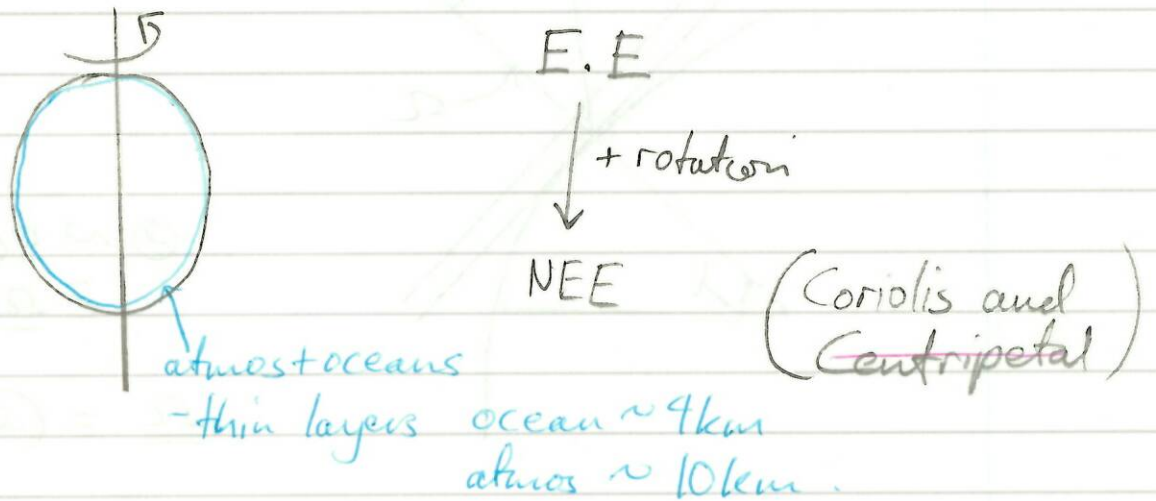 E.E
+ rotation
NEE
(Coriolis and
Centripetal)
atmos + oceans
- thin layers ocean ~ 4km
atmos ~ 10km.